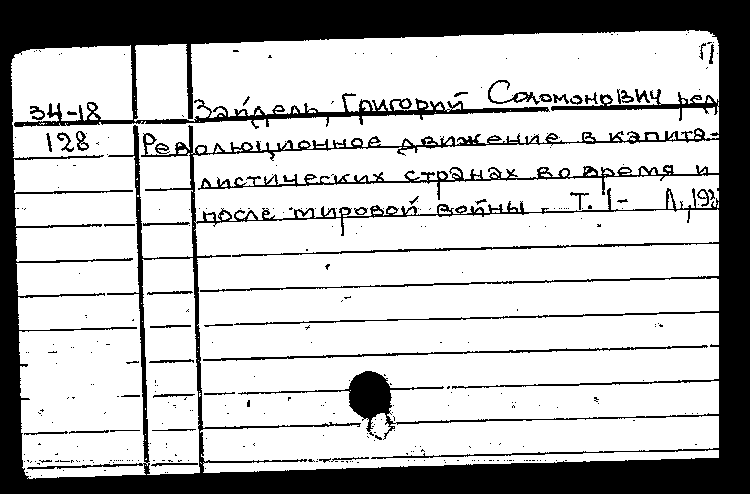 П
34-18 Зайдель, Григорий Соломонович ред
128 Революционное движение в капита-
листических странах во время и
после мировой войны. Т. 1- Л.,193